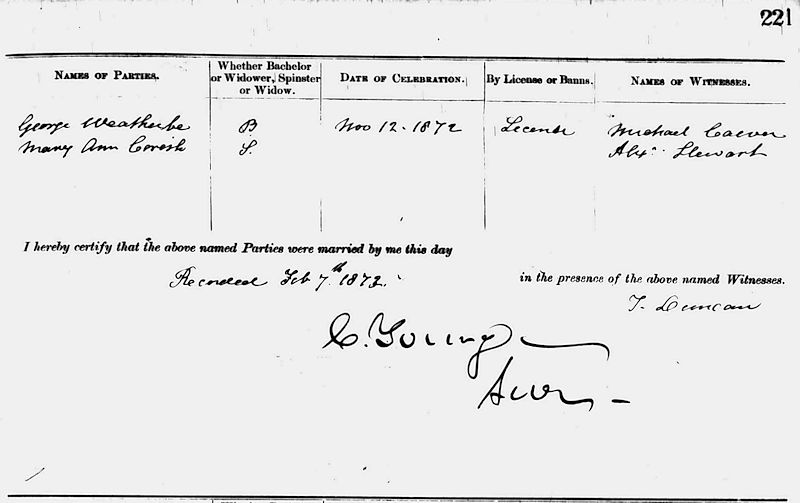 221
NAMES OF PARTIES. Whether Bachelor or Widower, Spinster or Widow. DATE OF CELEBRATION. By License or Banns. NAMES OF WITNESSES.
George Weatherbe B Nov 12. 1872 License Michael
Mary Ann S. Alexr Stewart
I hereby certify that the above named Parties were married by me this day
Recorded Feb 7th 1873. in the presence of the above named Witnesses.
T. Duncan
C. Young